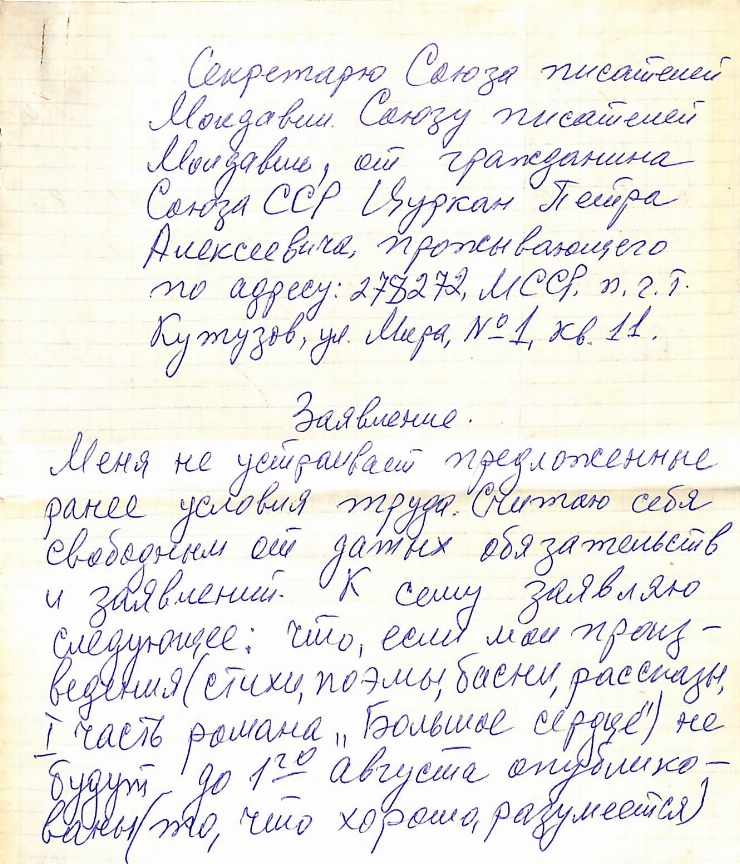 Секретарю Союза писателей
Молдавии. Союзу писателей
Молдавии, от гражданина
Союза ССР Цуркан Петра
Алексеевича, проживающего
по адресу: 278272, МССР. п. г. т.
Кутузов, ул. Мира, № 1, кв. 11.
Заявление.
Меня не устраивает предложенные
ранее условия труда. Считаю себя
свободным от данных обязательств
и заявлений. К сему заявляю
следующее: что, если мои произ-
ведения (стихи, поэмы, басни, рассказы,
I часть романа „Большое сердце") не
будут до 1го августа опублико-
ваны (то, что хорошо, разумеется)